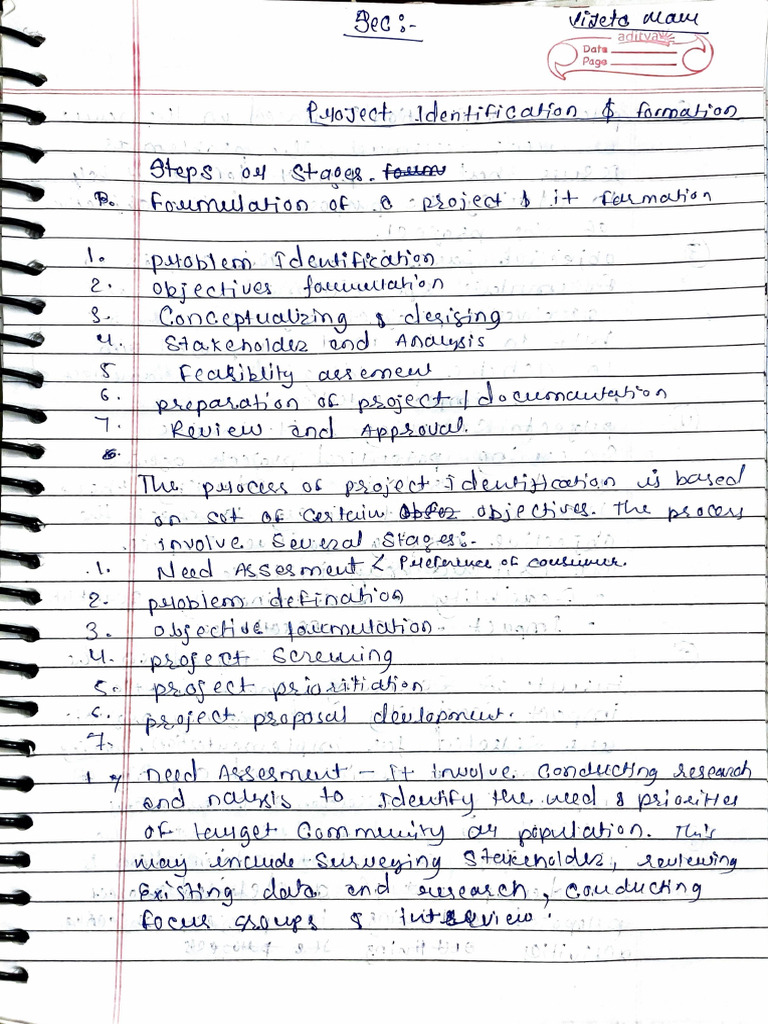 Sec:-
Vijeta Mam
aditya
Date
Page
Project Identification & formation
Steps or Stages. form
B. Formulation of a project & it formation
1. problem Identification
2. objectives formulation
3. Conceptualizing & desising
4. Stakeholder and Analysis
5 Feasiblity assement
6. preparation of project / documantation
7. Review and Approval.
8.
The process of project Identification is based
on set of certain objectives. The process
involve Several Stages:-
1. Need Assesment < Preference of consumer.
2. problem defination
3. objective formulation
4. project Screening
5. project prioritiation
6. project proposal development.
7.
1 Need Assesment - It involve Conducting research
and nalysis to Identify the need & priorities
of target Community or population. This
may include Surveying Stakeholder, reviewing
Existing data and research, Conducting
focus groups & interview.